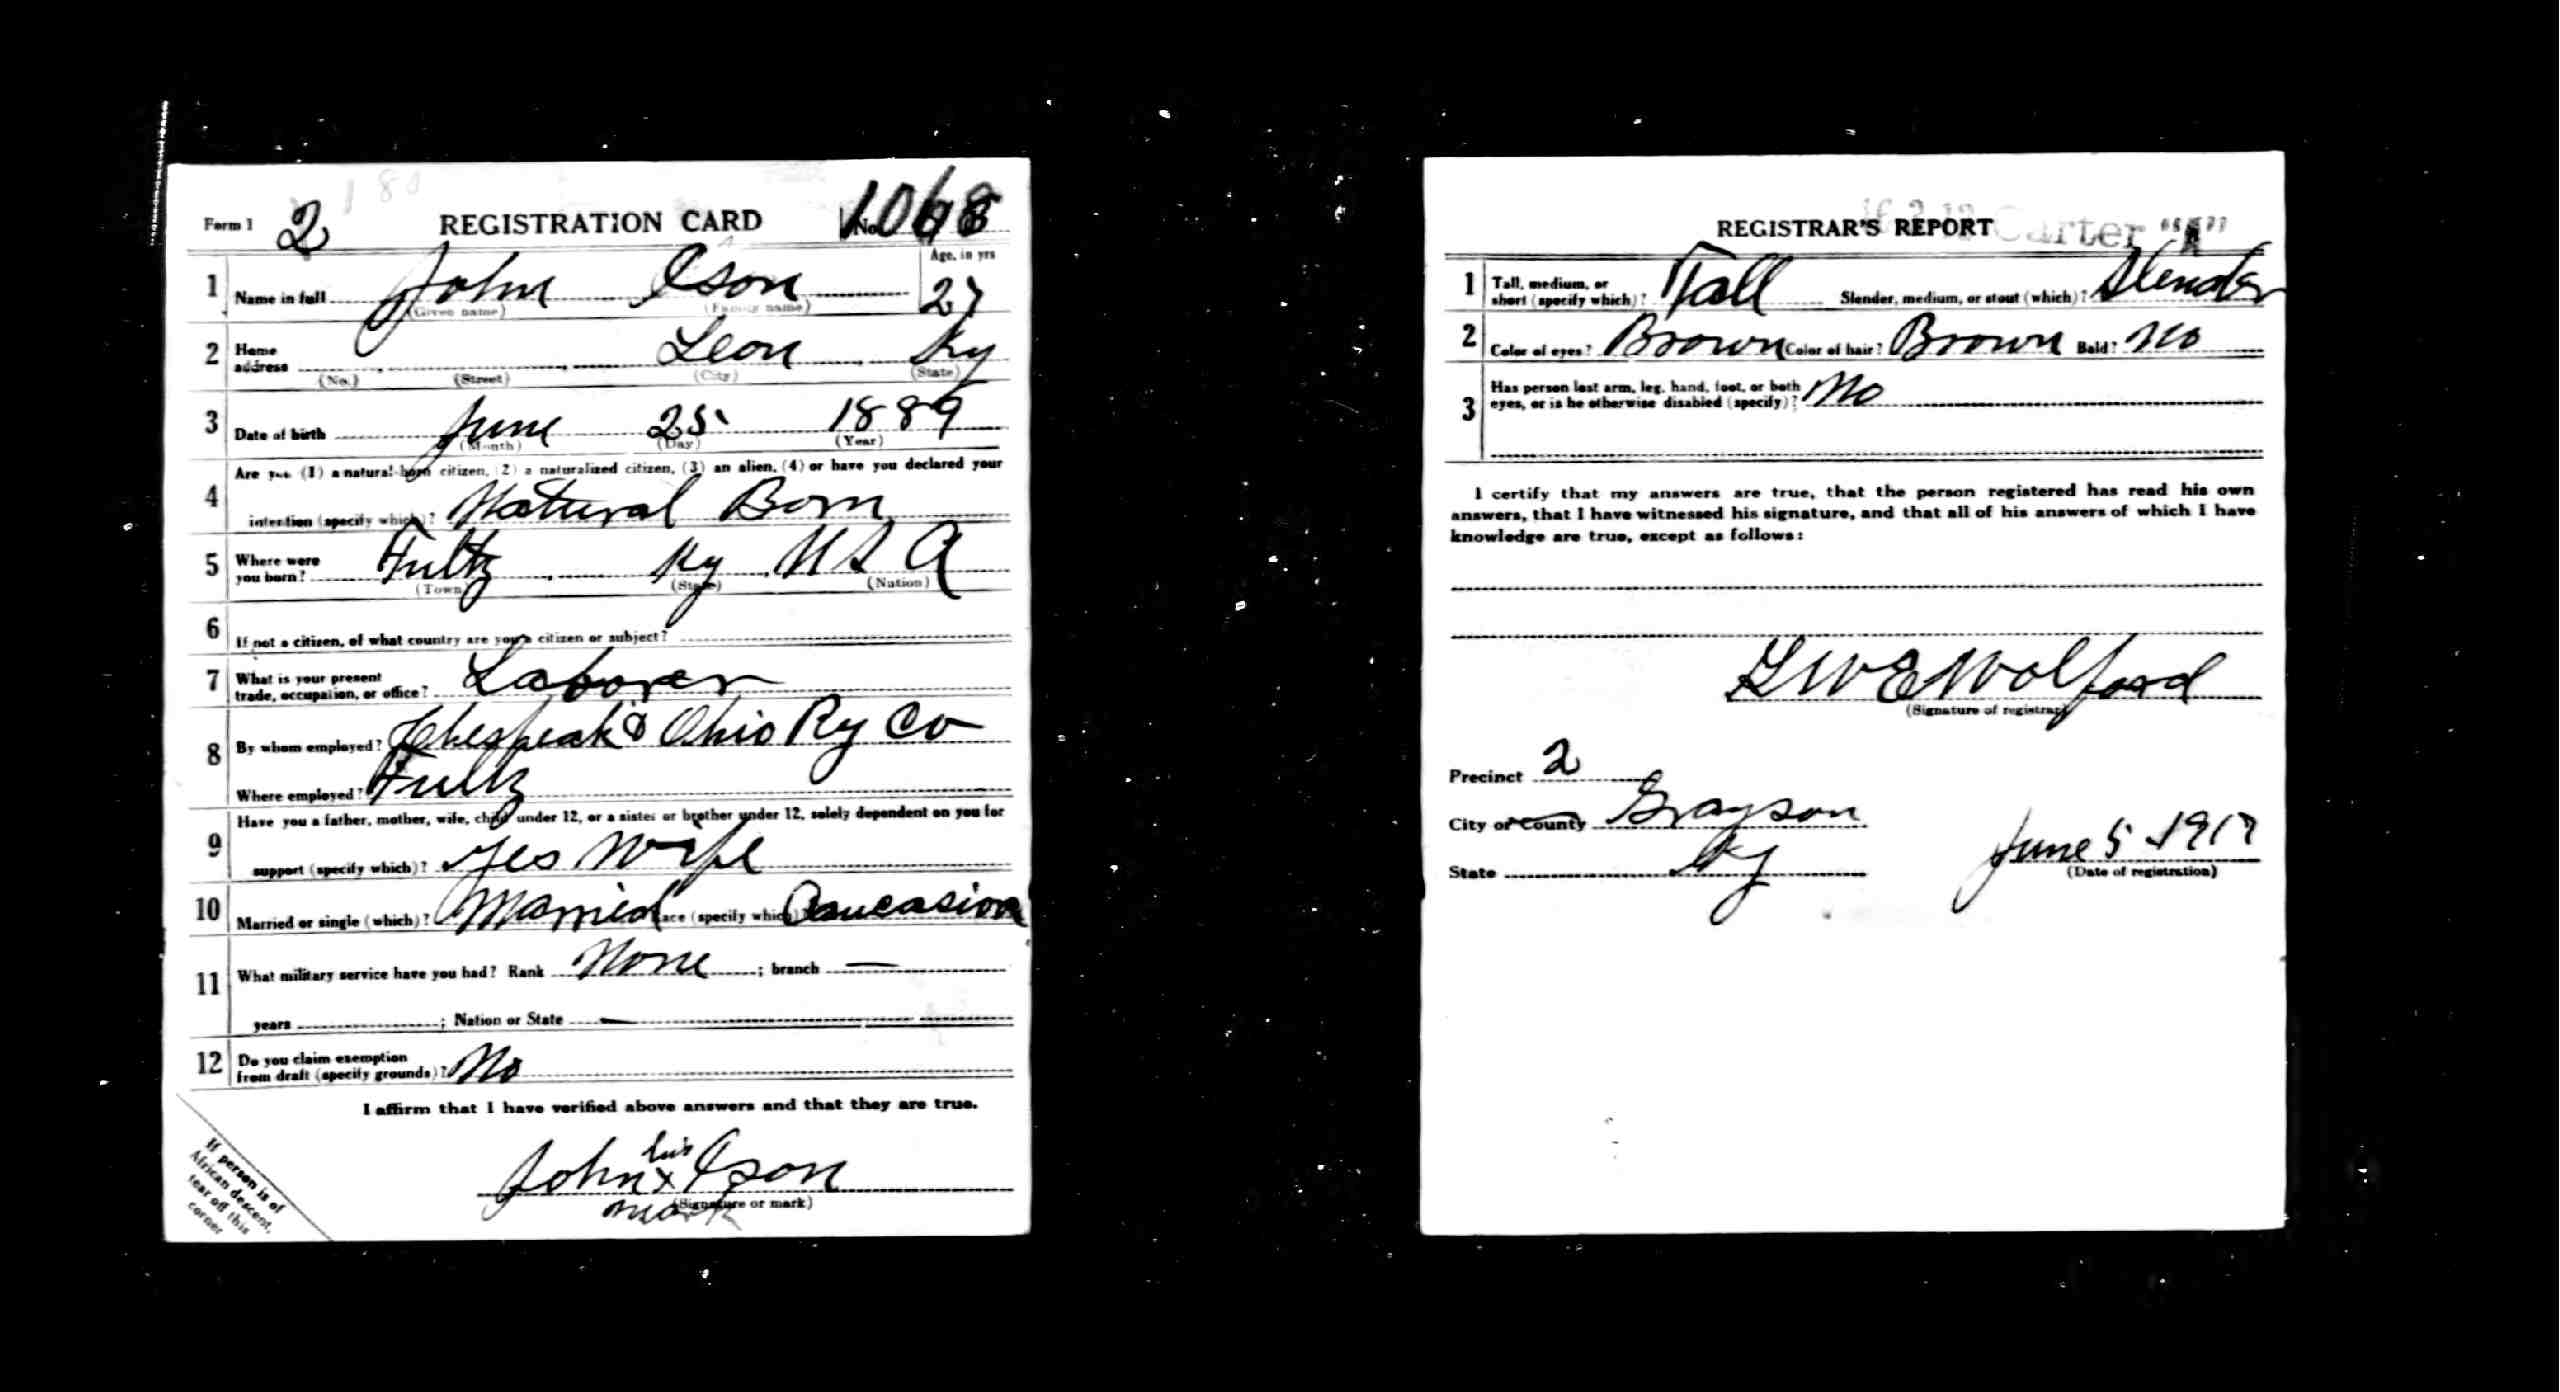 Form 1 2 REGISTRATION CARD No. 1068
1 Name in full John Ison Age, in yrs 27
(Given name) (Family name)
2 Home address Leon Ky
(No.) (Street) (City) (State)
3 Date of birth June 25 1889
(Month) (Day) (Year)
4 Are you (1) a natural-born citizen, (2) a naturalized citizen, (3) an alien, (4) or have you declared your
intention (specify which)? Natural Born
5 Where were you born? Fultz Ky U S A
(Town) (State) (Nation)
6 If not a citizen, of what country are you a citizen or subject?
7 What is your present trade, occupation, or office? Laborer
8 By whom employed? Chespeak & Ohio Ry Co
Where employed? Fultz
9 Have you a father, mother, wife, child under 12, or a sister or brother under 12, solely dependent on you for
support (specify which)? Yes Wife
10 Married or single (which)? Married Race (specify which)? Caucasion
11 What military service have you had? Rank None ; branch —
years ; Nation or State —
12 Do you claim exemption from draft (specify grounds)? No
I affirm that I have verified above answers and that they are true.
John his x Ison
mark (Signature or mark)
If person is of
African descent,
tear off this
corner
REGISTRAR'S REPORT Carter
1 Tall, medium, or short (specify which)? Tall Slender, medium, or stout (which)? Slender
2 Color of eyes? Brown Color of hair? Brown Bald? No
3 Has person lost arm, leg, hand, foot, or both eyes, or is he otherwise disabled (specify)? No
I certify that my answers are true, that the person registered has read his own
answers, that I have witnessed his signature, and that all of his answers of which I have
knowledge are true, except as follows:
L W E Wolford
(Signature of registrar)
Precinct 2
City or County Grayson
State Ky June 5 1917
(Date of registration)